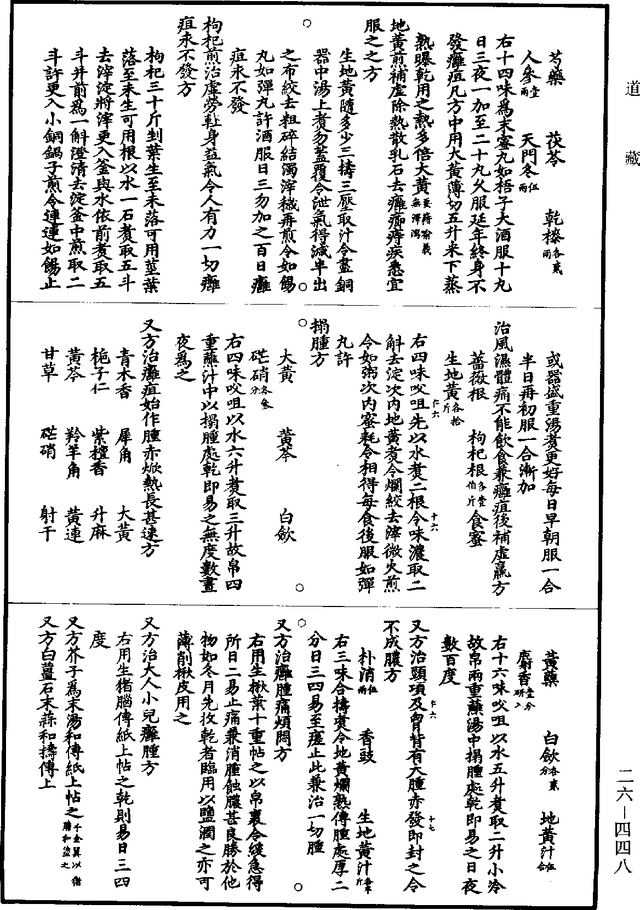 道藏
芍藥 茯苓 乾㯃各貳兩
人參壹兩 天門冬伍兩
右十四味爲末蜜丸如梧子大酒服十九
日三夜一加至二十九久服延年終身不
發癰疽凡方中用大黃薄切五升米下蒸
熟曝乾用之熱多倍大黃
地黃煎補虛除熱散乳石去癰癤痔疾悉宜
服之之方
生地黃隨多少三擣三壓取汁令盡銅
器中湯上煑勿蓋覆令泄氣得減半出
之布絞去粗碎結濁滓穢再煎令如餳
丸如彈丸許酒服日三勿加之百日癰
疽永不發
枸杞煎治虛勞輕身益氣令人有力一切癰
疽永不發方
枸杞三十斤剉葉生至未落可用莖葉
落至未生可用根以水一石煑取五斗
去滓淀將滓更入釜與水依前煑取五
斗并前爲一斛澄清去淀釜中煎取二
斗許更入小銅鍋子煎令連連如餳止
或器盛重湯煑更好每日早朝服一合
半日再初服一合漸加
治風濕體痛不能飲食兼癰疽後補虛羸方
薔薇根 枸杞根各壹伯斤 食蜜
生地黃各拾斤
右四味㕮咀先以水煑二根令味濃取二
斛去淀次內地黃煑令爛絞去滓微火煎
令如粥次內蜜耗令相得每食後服如彈
丸許
搨腫方
大黃 黃芩 白斂
芒硝各叁分
右四味㕮咀以水六升煑取三升故帛四
重蘸汁中以搨腫處乾即易之無度數晝
夜爲之
又方治癰疽始作腫赤焮熱長甚速方
青木香 犀角 大黃
梔子仁 紫檀香 升麻
黃芩 羚羊角 黃連
甘草 芒硝 射干
黃蘗 白斂各貳分 地黃汁伍合
麝香壹分研入
右十六味㕮咀以水五升煑取二升小冷
故帛兩重蘸湯中搨腫處乾即易之日夜
數百度
又方治頸項及胷背有大腫赤發即封之令
不成膿方
朴消伍兩 香豉 生地黃汁
右三味合擣煑令地黃爛熟傅腫處厚二
分日三四易至瘥止此兼治一切腫
又方治癰腫痛煩悶方
右用生楸葉十重帖之以帛裹令緩急得
所日二易止痛兼消腫蝕膿甚良勝於他
物如冬月先收乾者臨用以鹽潤之亦可
薄削楸皮用之
又方治大人小兒癰腫方
右用生猪腦傅紙上帖之乾則易日三四
度
又方芥子爲末湯和傅紙上帖之千金翼以猪膽和塗之
又方白薑石末蒜和擣傅上
二六—四四八